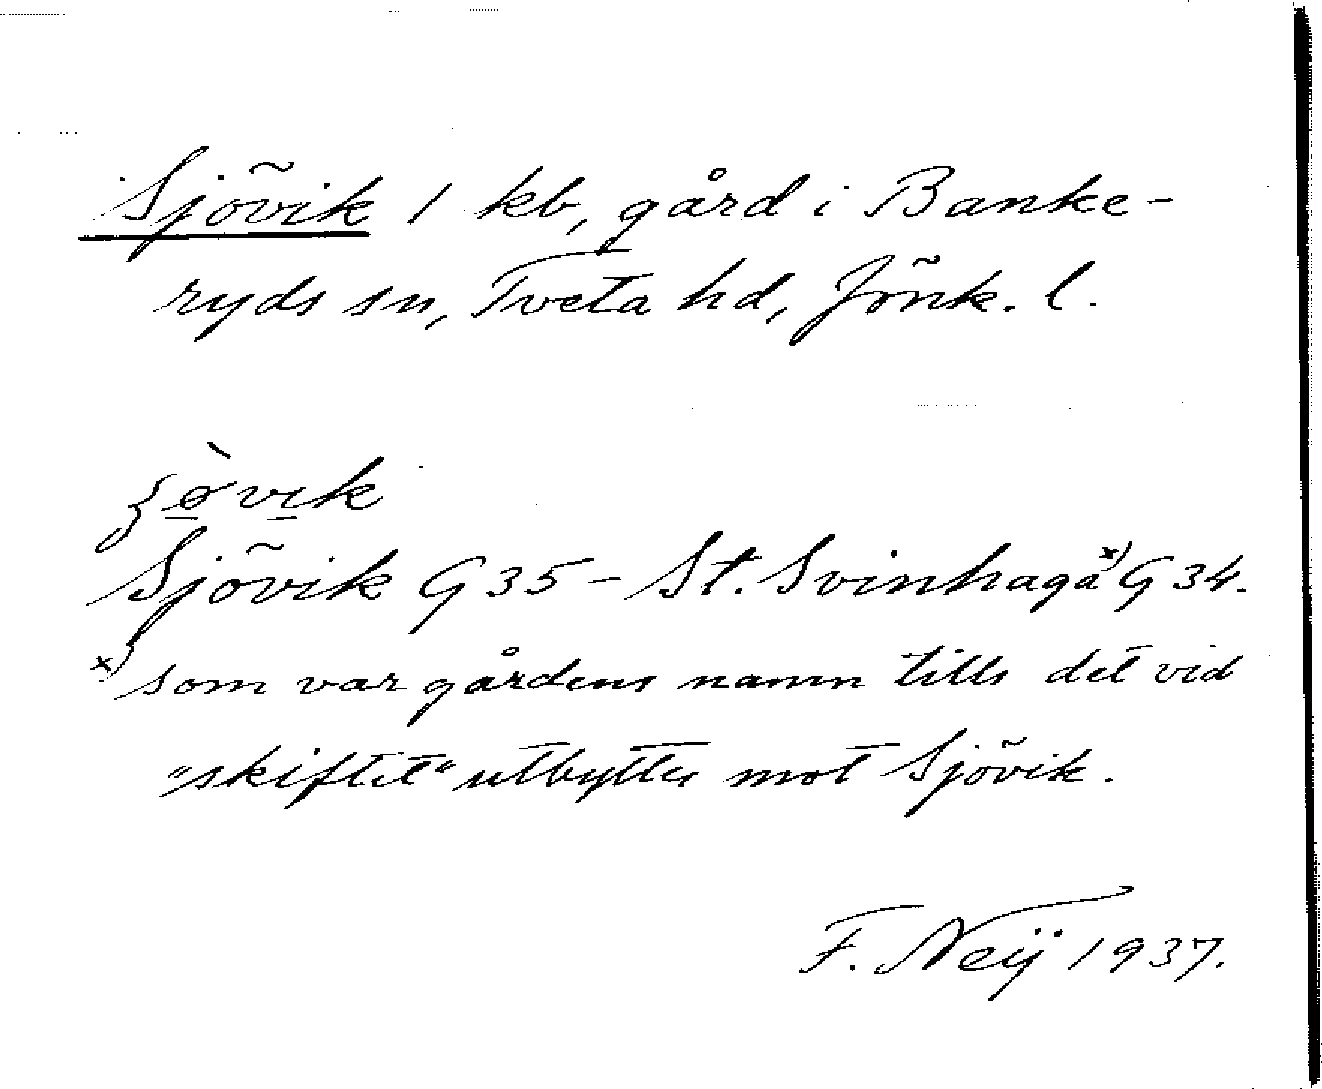 Sjövik 1 kb, gård i Banke-
ryds sn, Tveta hd, Jönk. l.
ʒø̀vik
Sjövik G 35 - St. Svinhaga x) G 34.
x) som var gårdens namn tills det vid
"skiftet" utbyttes mot Sjövik.
F. Neij 1937.